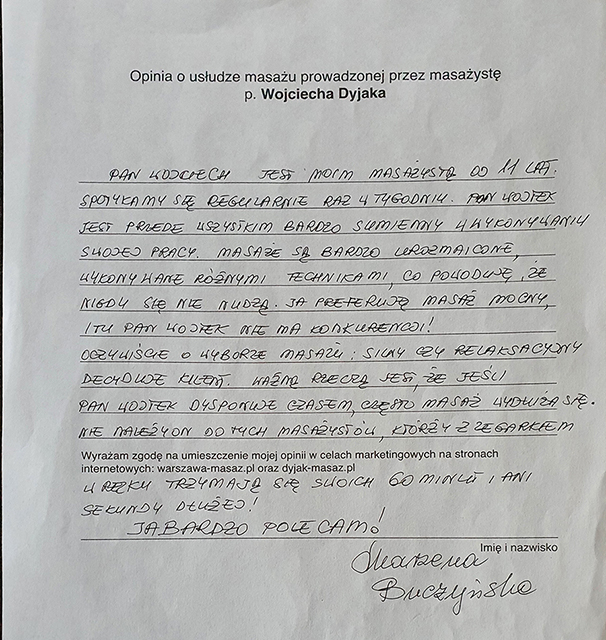 Opinia o usłudze masażu prowadzonej przez masażystę
p. Wojciecha Dyjaka
PAN WOJCIECH JEST MOIM MASAŻYSTĄ OD 11 LAT.
SPOTYKAMY SIĘ REGULARNIE RAZ W TYGODNIU. PAN WOJTEK
JEST PRZEDE WSZYSTKIM BARDZO SUMIENNY W WYKONYWANIU
SWOJEJ PRACY. MASAŻE SĄ BARDZO UROZMAICONE,
WYKONYWANE RÓŻNYMI TECHNIKAMI, CO POWODUJE, ŻE
NIGDY SIĘ NIE NUDZĄ. JA PREFERUJĘ MASAŻ MOCNY,
I TU PAN WOJTEK NIE MA KONKURENCJI!
OCZYWIŚCIE O WYBORZE MASAŻU: SILNY CZY RELAKSACYJNY
DECYDUJE KLIENT. WAŻNĄ RZECZĄ JEST, ŻE JEŚLI
PAN WOJTEK DYSPONUJE CZASEM, CZĘSTO MASAŻ WYDŁUŻA SIĘ.
NIE NALEŻY ON DO TYCH MASAŻYSTÓW, KTÓRZY Z ZEGARKIEM
Wyrażam zgodę na umieszczenie mojej opinii w celach marketingowych na stronach
internetowych: warszawa-masaz.pl oraz dyjak-masaz.pl
W RĘKU TRZYMAJĄ SIĘ SWOICH 60 MINUT I ANI
SEKUNDY DŁUŻEJ!
JA BARDZO POLECAM!
Imię i nazwisko
Marzena
Buczyńska